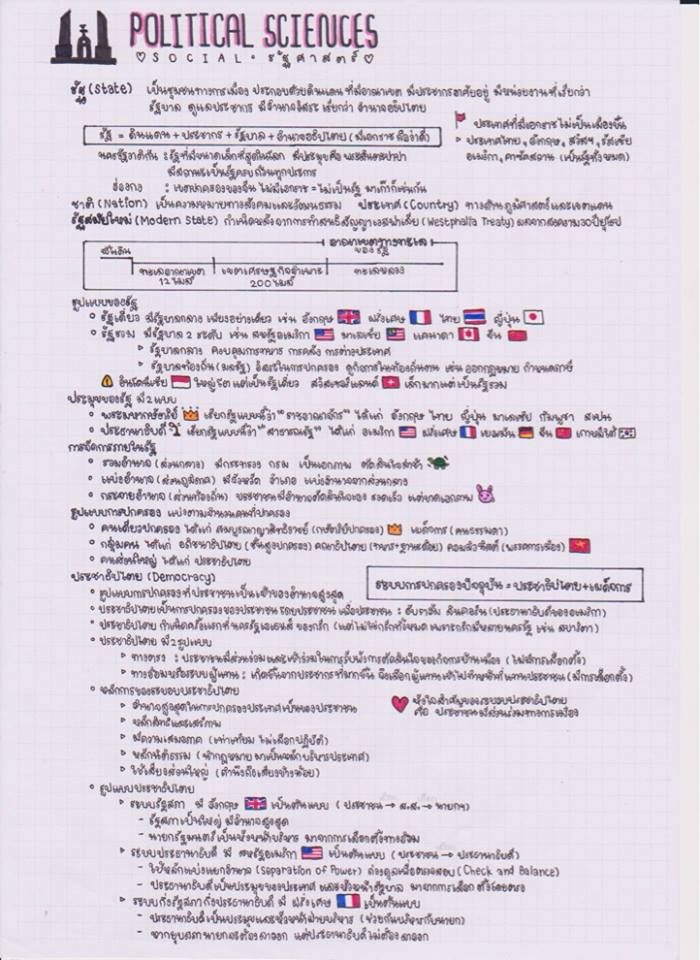 POLITICAL SCIENCES
♡ SOCIAL • รัฐศาสตร์ ♡
รัฐ (State) เป็นชุมชนทางการเมือง ประกอบด้วยดินแดนที่มีอาณาเขต มีประชากรอาศัยอยู่ มีหน่วยงานที่เรียกว่า
รัฐบาล ดูแลประชากร มีอำนาจอิสระ เรียกว่า อำนาจอธิปไตย
รัฐ = ดินแดน + ประชากร + รัฐบาล + อำนาจอธิปไตย (มีเอกราช
ประเทศที่มีเอกราชไม่เป็นเมืองขึ้น
▹ ประเทศไทย, อังกฤษ, สวิสฯ, รัสเซีย
อเมริกา, คาซัคสถาน (เป็นรัฐทั้งหมด)
นครรัฐวาติกัน : รัฐที่ขนาดเล็กที่สุดในโลก มีประมุขคือ พระสันตะปาปา
มีสถานะเป็นรัฐครบถ้วนทุกประการ
ฮ่องกง : เขตปกครองของจีน ไม่มีเอกราช = ไม่เป็นรัฐ มาเก๊าก็เช่นกัน
ชาติ (Nation) เป็นความหมายทางสังคมและวัฒนธรรม ประเทศ (Country) ทางด้านภูมิศาสตร์และเขตแดน
รัฐสมัยใหม่ (Modern State) กำเนิดหลังจากการทำสนธิสัญญาเวสฟาเลีย (Westphalia Treaty) ผลจากสงคราม 30 ปียุโรป
อาณาเขตทางทะเล
ของรัฐ
ผืนดิน
ทะเลอาณาเขต เขตเศรษฐกิจจำเพาะ ทะเลหลวง
12 ไมล์ 200 ไมล์
รูปแบบของรัฐ
รัฐเดี่ยว มีรัฐบาลกลาง เพียงอย่างเดียว เช่น อังกฤษ ฝรั่งเศษ ไทย ญี่ปุ่น
รัฐรวม มีรัฐบาล 2 ระดับ เช่น สหรัฐอเมริกา มาเลเซีย แคนาดา จีน
▹ รัฐบาลกลาง ควบคุมการทหาร การคลัง การต่างประเทศ
▹ รัฐบาลท้องถิ่น (มลรัฐ) อิสระในการปกครอง ดูกิจการในท้องถิ่นตน เช่น ออกกฎหมาย กำหนดภาษี
อินโดนีเซีย ใหญ่โต แต่เป็นรัฐเดี่ยว สวิสเซอร์แลนด์ เล็กมากแต่เป็นรัฐรวม
ประมุขของรัฐ มี 2 แบบ
พระมหากษัตริย์ เรียกรัฐแบบนี้ว่า "ราชอาณาจักร" ได้แก่ อังกฤษ ไทย ญี่ปุ่น มาเลเซีย กัมพูชา สเปน
ประธานาธิบดี เรียกรัฐแบบนี้ว่า "สาธารณรัฐ" ได้แก่ อเมริกา ฝรั่งเศษ เยอรมัน จีน เกาหลีใต้
การจัดการภายในรัฐ
รวมอำนาจ (ส่วนกลาง) มีกระทรวง กรม เป็นเอกภาพ ตัดสินใจล่าช้า
แบ่งอำนาจ (ส่วนภูมิภาค) มีจังหวัด อำเภอ แบ่งอำนาจจากส่วนกลาง
กระจายอำนาจ (ส่วนท้องถิ่น) ประชาชนมีอำนาจตัดสินใจเอง รวดเร็ว แต่ขาดเอกภาพ
รูปแบบการปกครอง แบ่งตามจำนวนคนที่ปกครอง
คนเดียวปกครอง ได้แก่ สมบูรณาญาสิทธิราชย์ (กษัตริย์ปกครอง) เผด็จการ (คนธรรมดา)
กลุ่มคน ได้แก่ อภิชนาธิปไตย (ชั้นสูงปกครอง) คณาธิปไตย คอมมิวนิสต์ (พรรคการเมือง)
คนส่วนใหญ่ ได้แก่ ประชาธิปไตย
ระบบการปกครองปัจจุบัน = ประชาธิปไตย + เผด็จการ
ประชาธิปไตย (Democracy)
รูปแบบการปกครองที่ประชาชนเป็นเจ้าของอำนาจสูงสุด
ประชาธิปไตยเป็นการปกครองของประชาชน โดยประชาชน เพื่อประชาชน : อับราฮัม ลินคอล์น (ประธานาธิบดีของอเมริกา)
ประชาธิปไตย กำเนิดครั้งแรกที่นครรัฐเอเธนส์ ของกรีก (แต่ไม่ใช่กรีกทั้งหมด เพราะกรีกมีหลายนครรัฐ เช่น สปาร์ตา)
ประชาธิปไตย มี 2 รูปแบบ
▹ ทางตรง : ประชาชนมีส่วนร่วมและเข้าร่วมในการรับฟังการตัดสินใจของกิจการบ้านเมือง (ไม่มีการเลือกตั้ง)
▹ ทางอ้อมหรือระบบผู้แทน : เกิดขึ้นจากประชากรที่มากขึ้น จึงเลือกผู้แทนเข้าไปทำหน้าที่แทนประชาชน (มีการเลือกตั้ง)
หลักการของระบอบประชาธิปไตย
▹ อำนาจสูงสุดในการปกครองประเทศเป็นของประชาชน
▹ หลักสิทธิและเสรีภาพ
▹ มีความเสมอภาค (เท่าเทียม ไม่เลือกปฏิบัติ)
▹ หลักนิติธรรม (นำกฎหมายมาเป็นหลักบริหารประเทศ)
▹ ใช้เสียงส่วนใหญ่ (คำนึงถึงเสียงข้างน้อย)
หัวใจสำคัญของระบอบประชาธิปไตย
คือ ประชาชนมีส่วนร่วมทางการเมือง
รูปแบบประชาธิปไตย
▹ ระบบรัฐสภา มี อังกฤษ เป็นต้นแบบ (ประชาชน → ส.ส. → นายกฯ)
- รัฐสภาเป็นใหญ่ มีอำนาจสูงสุด
- นายกรัฐมนตรีเป็นหัวหน้าบริหาร มาจากการเลือกตั้งทางอ้อม
▹ ระบบประธานาธิบดี มี สหรัฐอเมริกา เป็นต้นแบบ (ประชาชน → ประธานาธิบดี)
- ใช้หลักแบ่งแยกอำนาจ (Separation of Power) ถ่วงดุลเพื่อตรวจสอบ (Check and Balance)
- ประธานาธิบดีเป็นประมุขของประเทศ และหัวหน้ารัฐบาล มาจากการเลือกตั้งโดยตรง
▹ ระบบกึ่งรัฐสภา กึ่งประธานาธิบดี มี ฝรั่งเศษ เป็นต้นแบบ
- ประธานาธิบดีเป็นประมุขและหัวหน้าฝ่ายบริหาร (ช่วยกันบริหารกับนายก)
- หากยุบสภา นายกจะต้องลาออก แต่ประธานาธิบดีไม่ต้องลาออก